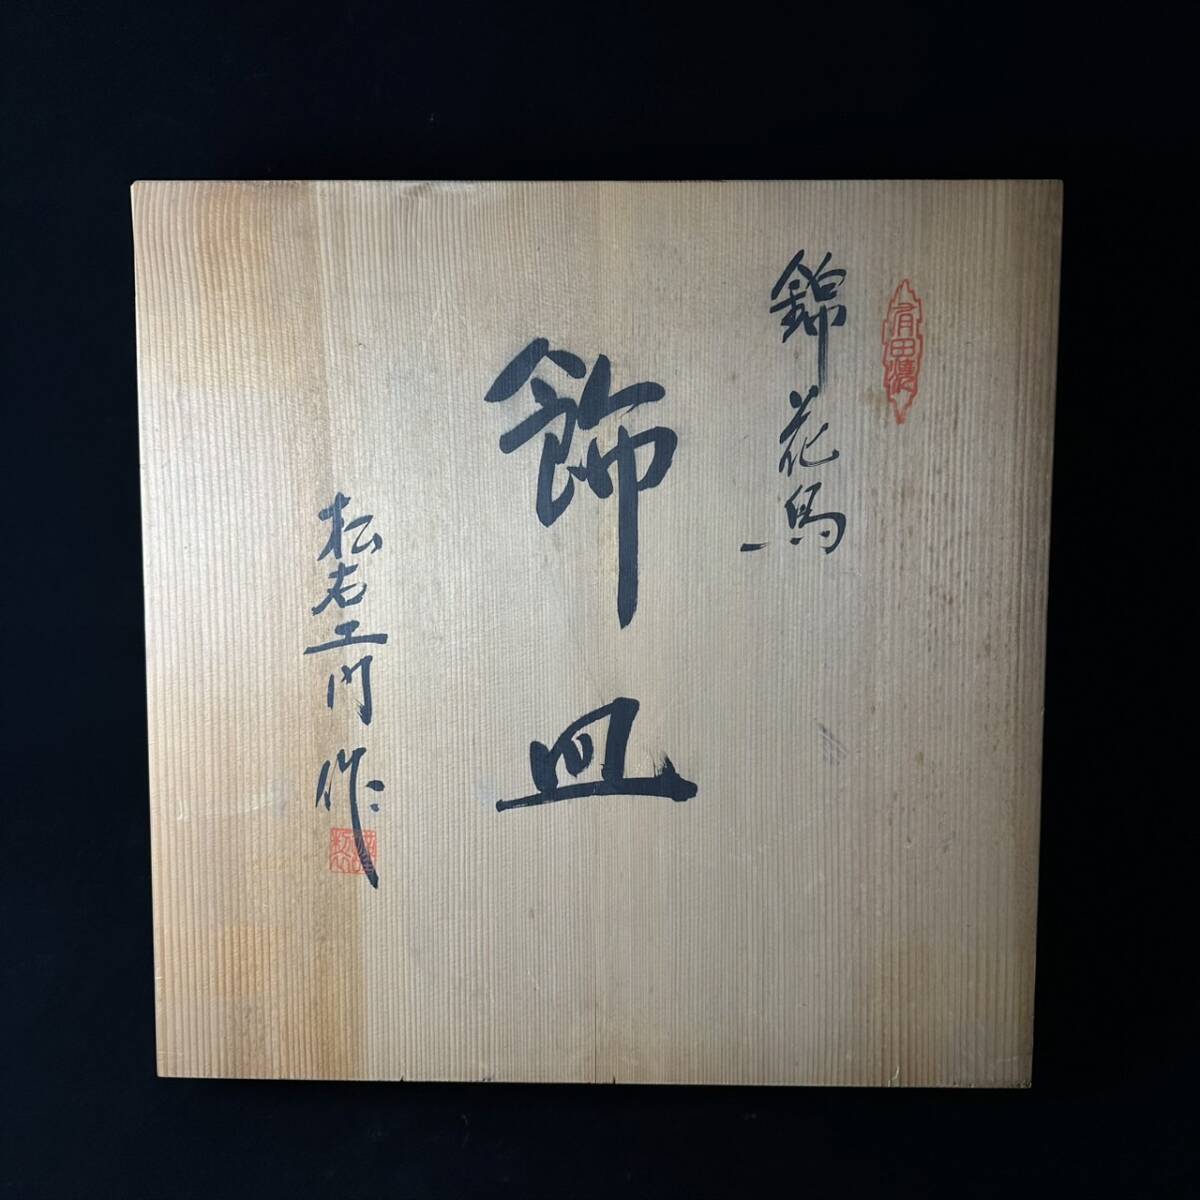 有田焼
錦花鳥
飾皿
松右エ門作